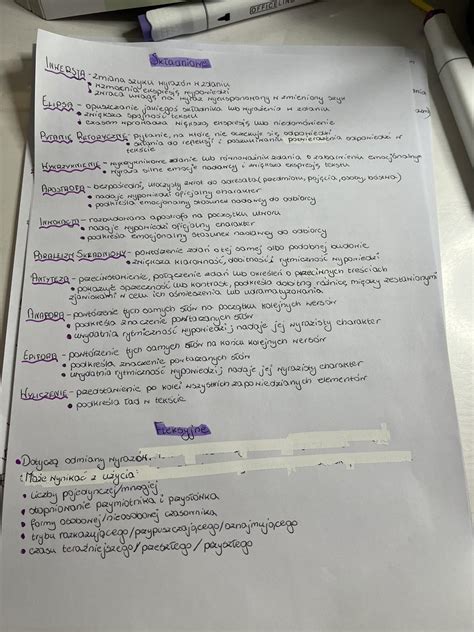 OFFICELINE
Składniowe
INWERSJA - zmiana szyku wyrazów w zdaniu
• wzmacnia ekspresję wypowiedzi
• zwraca uwagę na wyraz wyeksponowany w zmieniony szyk
ELIPSA - opuszczanie jakiegoś składnika lub wyrażenia w zdaniu
• zwiększa spójność tekstu
• czasami wprowadza większą ekspresję lub niedomówienie
PYTANIE RETORYCZNE - pytanie, na które nie oczekuje się odpowiedzi
• skłania do refleksji i poszukiwania odpowiedzi w
tekście
WYKRZYKNIENIE - wykrzyknikowe zdanie lub równoważnik zdania o zabarwieniu emocjonalnym
• wyraża silne emocje nadawcy i zwiększa ekspresję tekstu
APOSTROFA - bezpośredni, uroczysty zwrot do adresata (przedmiotu, pojęcia, osoby, bóstwa)
• nadaje wypowiedzi oficjalny charakter
• podkreśla emocjonalny stosunek nadawcy do odbiorcy
INWOKACJA - rozbudowana apostrofa na początku utworu
• nadaje wypowiedzi oficjalny charakter
• podkreśla emocjonalny stosunek nadawcy do odbiorcy
PARALELIZM SKŁADNIOWY - powtórzenie zdań o tej samej albo podobnej budowie
• zwiększa klarowność, dobitność i rytmiczność wypowiedzi
ANTYTEZA - przeciwstawienie, połączenie zdań lub określeń o przeciwnych treściach
• pokazuje sprzeczność lub kontrast, podkreśla dobitną różnicę między zestawionymi
zjawiskami w celu ich ośmieszenia lub udramatyzowania
ANAFORA - powtórzenie tych samych słów na początku kolejnych wersów
• podkreśla znaczenie powtarzanych słów
• uwydatnia rytmiczność wypowiedzi, nadaje jej wyrazisty charakter
EPIFORA - powtórzenie tych samych słów na końcu kolejnych wersów
• podkreśla znaczenie powtarzanych słów
• uwydatnia rytmiczność wypowiedzi, nadaje jej wyrazisty charakter
WYLICZENIE - przedstawienie po kolei wszystkich zapowiedzianych elementów
• podkreśla ład w tekście
Fleksyjne
• Dotyczą odmiany wyrazów.
Może wynikać z użycia:
• liczby pojedynczej/mnogiej
• stopniowanie przymiotnika i przysłówka
• formy osobowej/nieosobowej czasownika
• trybu rozkazującego/przypuszczającego/oznajmującego
• czasu teraźniejszego/przeszłego/przyszłego